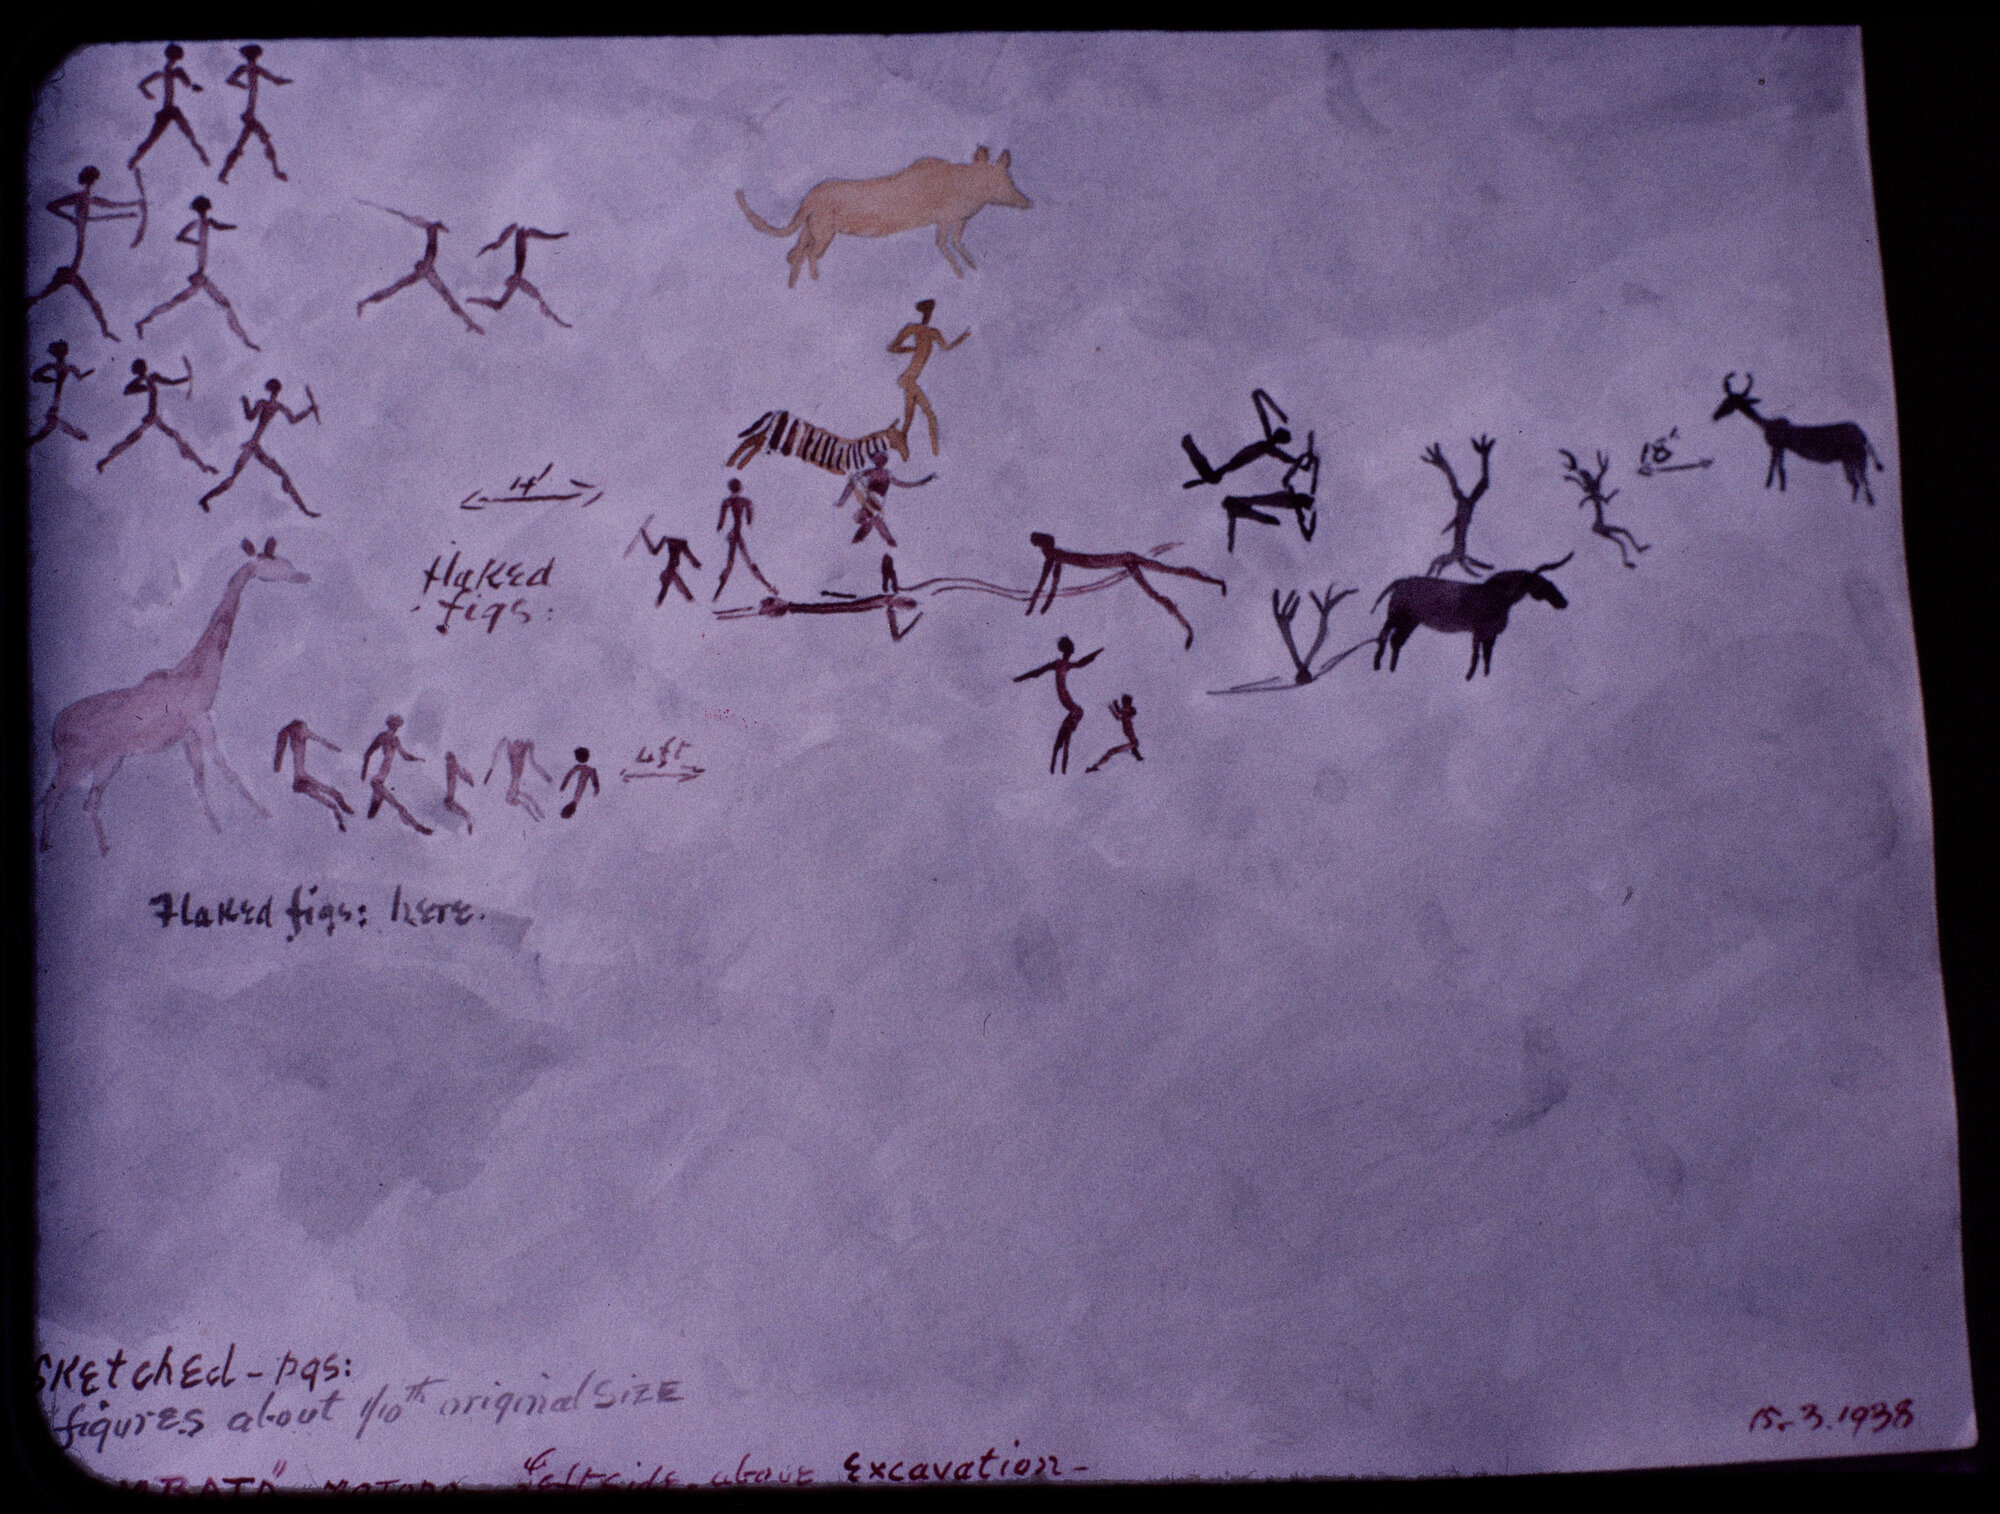 14'
18'
Flaked
figs:
4ft
Flaked figs: here.
Sketched - pgs:
figures about 1/10th original size
15-3.1938
"Left side above Excavation-